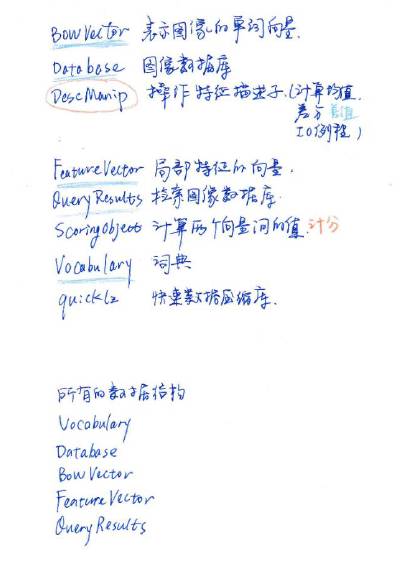 BowVector 表示图像的单词向量.
Database 图像数据库
DescManip 操作特征描述子.(计算均值.
差分 差值
IO例程)
FeatureVector 局部特征的向量.
QueryResults 检索图像数据库.
ScoringObject 计算两个向量间的值.计分
Vocabulary 词典
quicklz 快速数据压缩库.
所有的数据结构
Vocabulary
Database
BowVector
FeatureVector
QueryResults